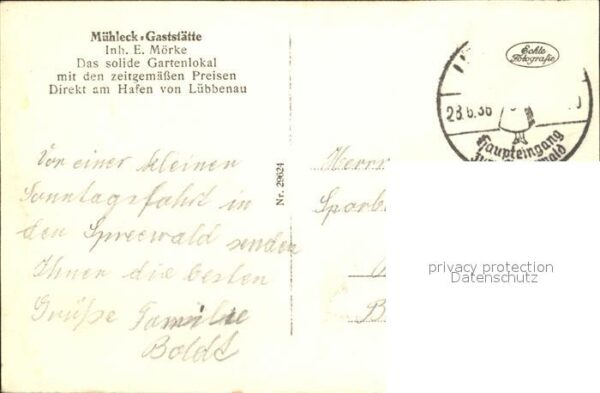 Mühleck-Gaststätte
Inh. E. Mörke
Das solide Gartenlokal
mit den zeitgemäßen Preisen
Direkt am Hafen von Lübbenau
Echte
Fotografie
23.6.36
Haupteingang
Vor einer kleinen
Sonntagsfahrt in
den Spreewald senden
Ihnen die besten
Grüße Familie
Boldt
Nr. 29624
Herrn
Sparb
B
privacy protection
Datenschutz